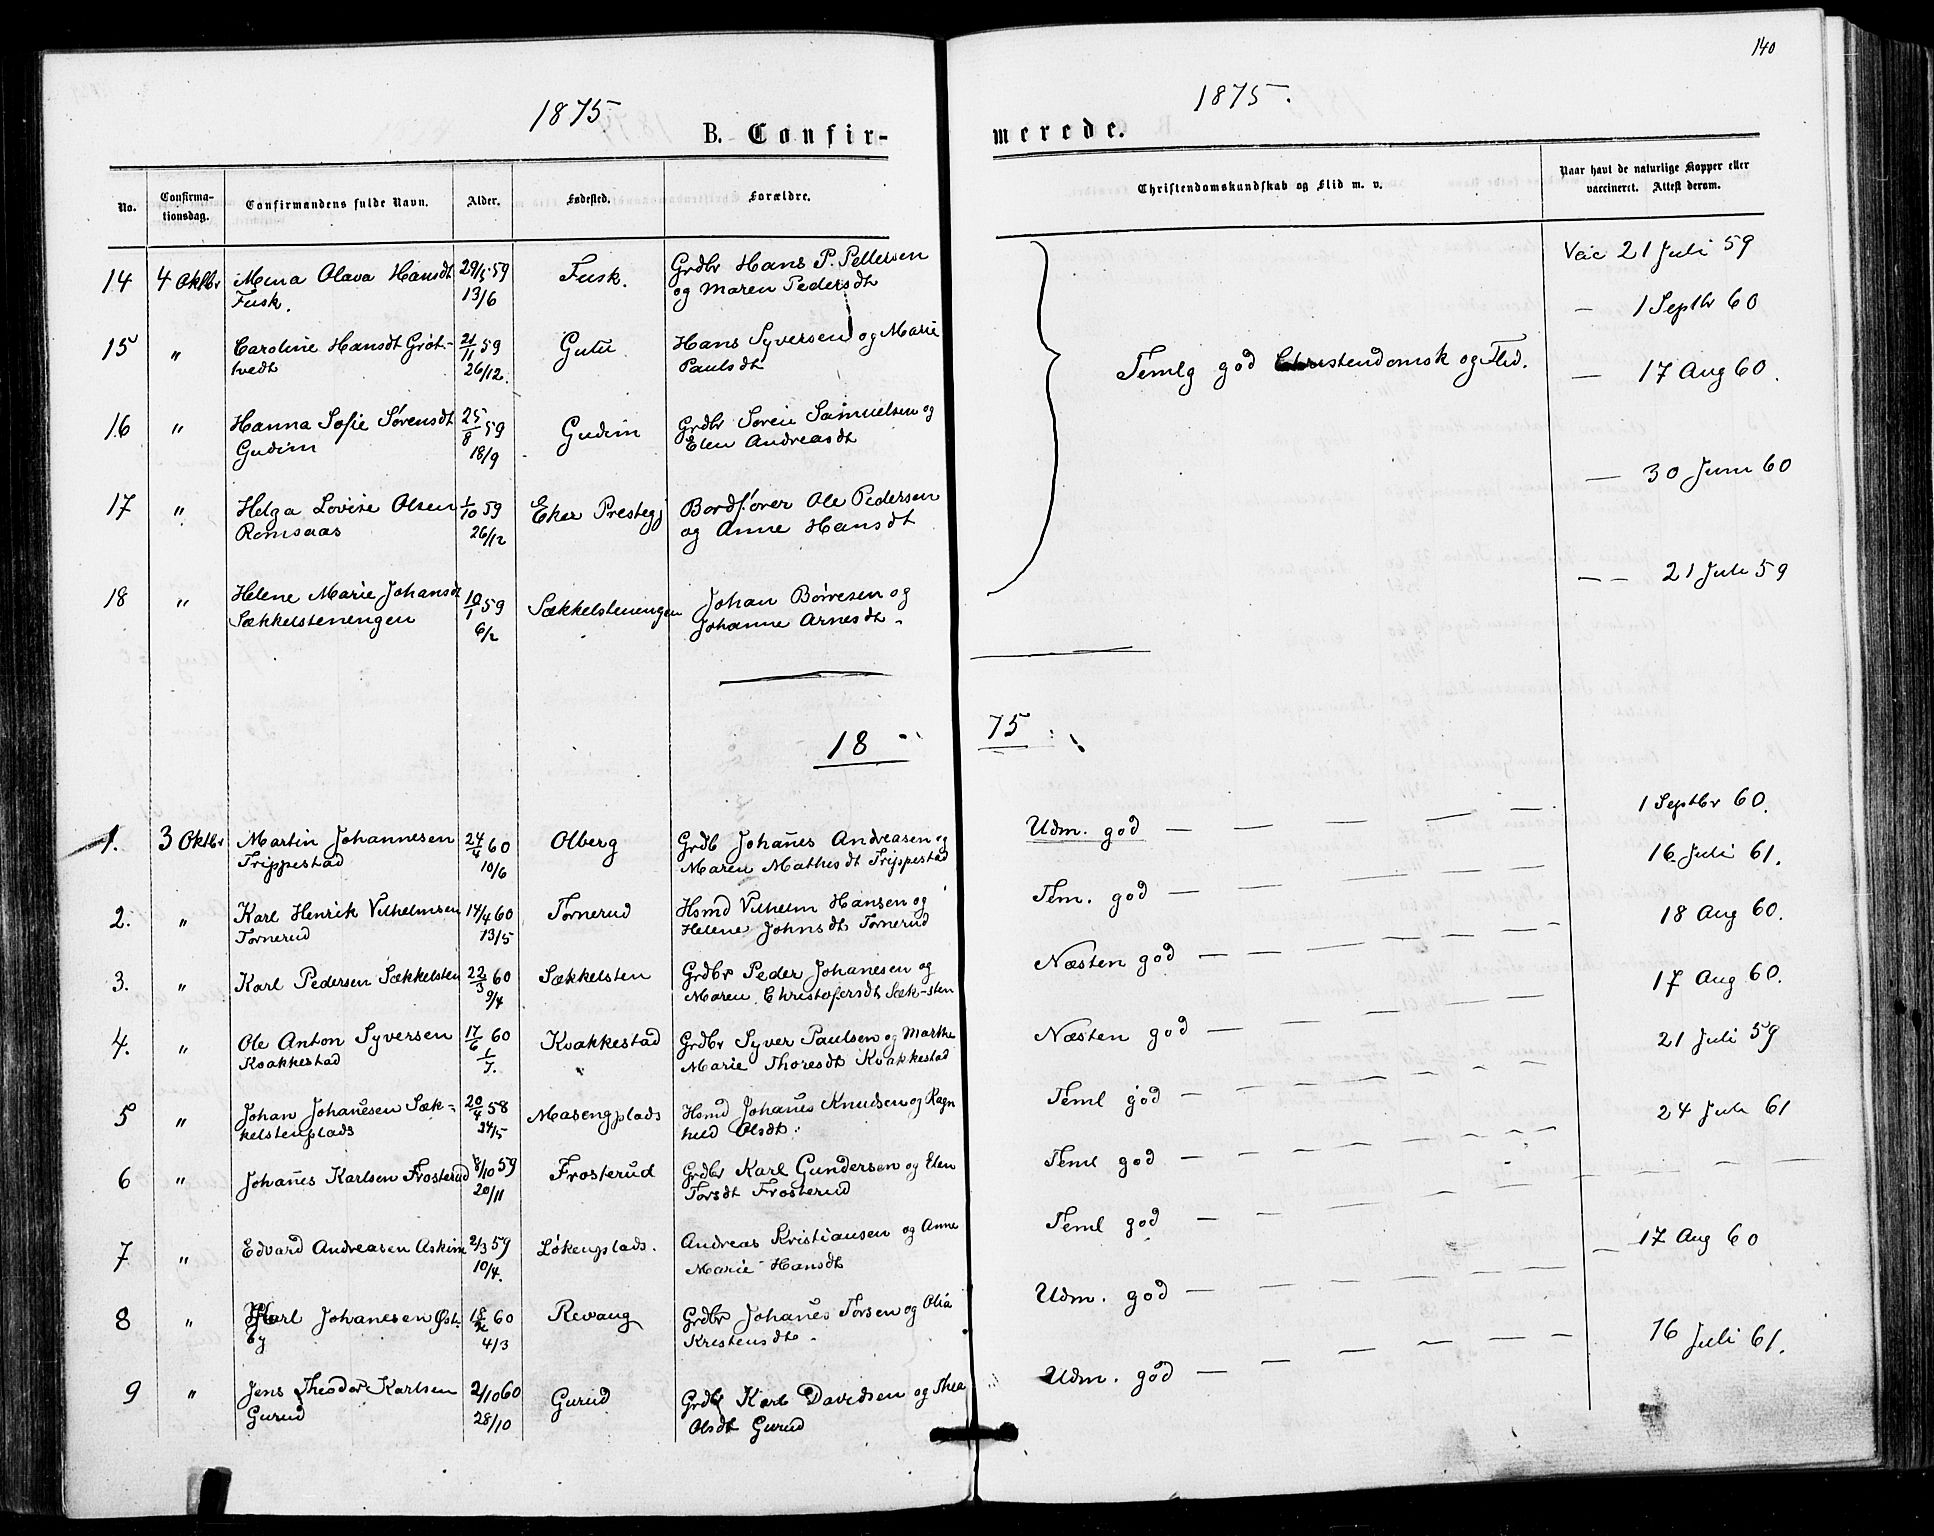 140
1875
1875.
B. Confir-
merede.
No.
Confirma-
tionsdag.
Confirmandens fulde Navn.
Alder.
Fødested.
Forældre.
Christendomskundskab og Flid m. v.
Naar havt de naturlige Kopper eller
vaccineret. Attest derom.
14 4 Oktbr Mina Olava Hansdt 29/5 59 Fusk. Grdbr Hans P. Pettersen
Fusk. 13/6 og Maren Pedersdt
Vac 21 Juli 59
— 1 Septbr 60
15 " Caroline Hansdt Grøt- 21/11 59 Gutu Hans Syversen og Marie
tvedt 26/12. Paulsdt
Temlg god Christendomsk og Flid.
— 17 Aug 60.
16 " Hanna Sofie Sørensdt 25/8 59 Gudim Grdbr Søren Samuelsen og
Gudim 18/9 Elen Andreasdt
— 30 Juni 60
17 " Helga Lovise Olsen 1/10 59 Eker Prestegj Bordfører Ole Pedersen
Romsaas 26/12 og Anne Hansdt
— — 21 Juli 59
18 " Helene Marie Johansdt 10/1 59 Sækkelstenengen Johan Børresen og
Sækkelstenengen 6/2 Johanne Arnesdt.
18 75
1. 3 Oktbr Martin Johannesen 24/4 60 Olberg Grdb Johan̄es Andreasen og Udm. god — — — — — 1 Septbr 60.
Trippestad 10/6 Maren Mathisdt Trippestad
16 Juli 61.
2. " Karl Henrik Vilhelmsen 14/4 60 Tornerud Hsmd Vilhelm Hansen og Tem. god — — — — —
Tornerud 13/5 Helene Johnsdt Tornerud
18 Aug 60.
3. " Karl Pedersen Sækkelsten 22/3 60 Sækkelsten Grdbr Peder Johanesen og Næsten god — — — — —
9/4 Maren Christofersdt Sæk-sten
17 Aug 60.
4. " Ole Anton Syversen 17/6 60 Kvakkestad Grdbr Syver Paulsen og Marthe Næsten god — — — — —
Kvakkestad 1/7. Marie Thoresdt Kvakkestad
21 Juli 59
5 " Johan Johan̄esen Sæk- 20/4 58 Masengplads Hsmd Johan̄es Knudsen og Ragn Teml god — — — — —
kelstenplads 24/5 hild Olsdt.
24 Juli 61
6 " Johan̄es Karlsen Frosterud 8/10 59 Frosterud Grdbr Karl Gundersen og Elen Teml god — — — — —
20/11 Torsdt Frosterud
7 " Edvard Andreasen Askim 2/3 59 Løkenplads. Andreas Kristiansen og Anne Teml god — — — — —
10/4. Marie Hansdt
— 17 Aug 60
8 " Karl Johanesen Øst- 18/2 60 Revaug Grdbr Johan̄es Torsen og Olia Udm. god — — — — —
by 4/3 Kristensdt.
16 Juli 61.
9 " Jens Theodor Karlsen 2/10 60 Gurud Grdbr Karl Davidsen og Thea Udm. god — — — — —
Gurud 28/10 Olsdt Gurud